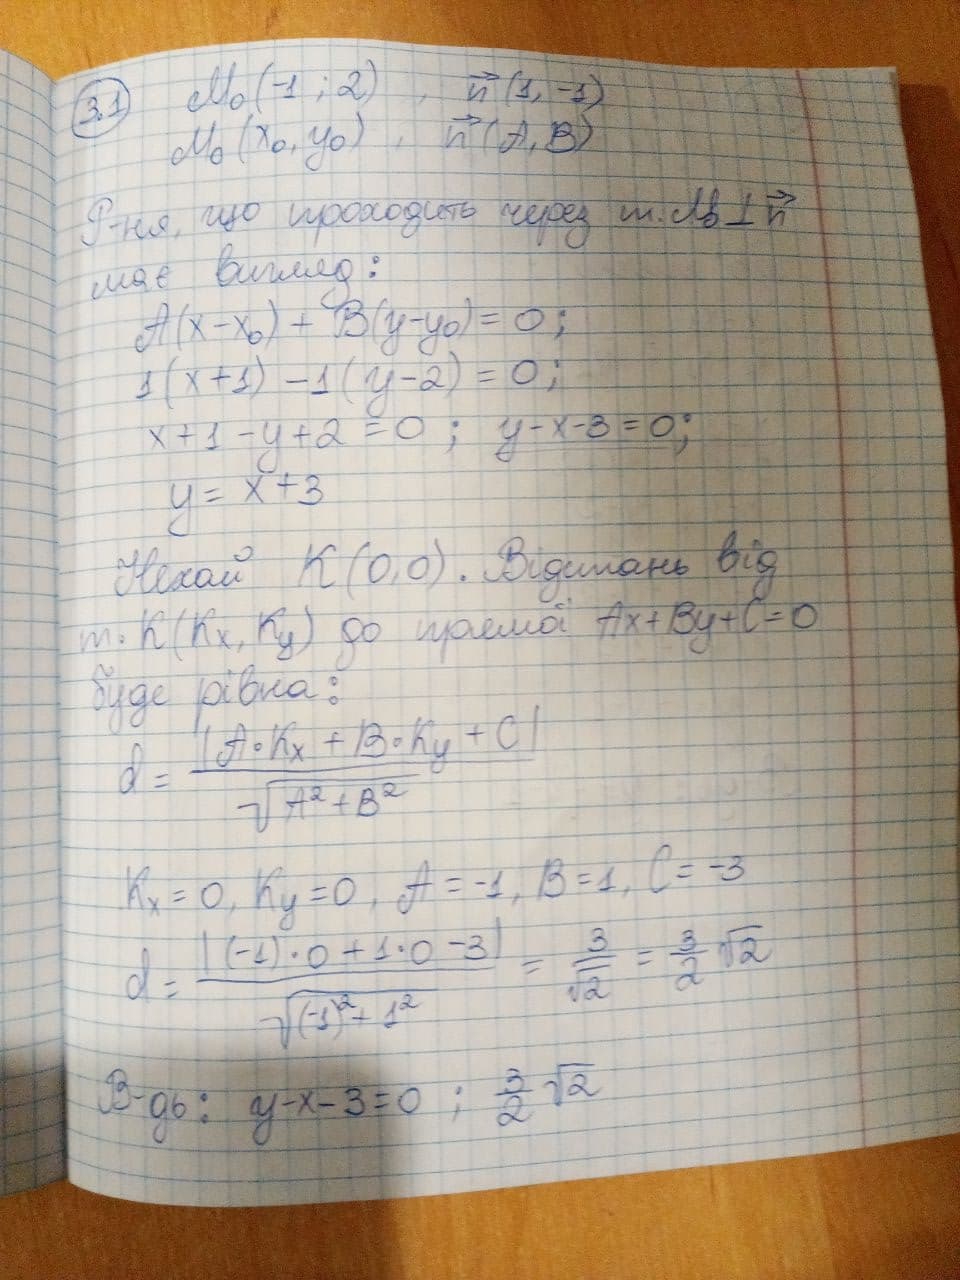 3.1 M₀(-1; 2), n⃗(1, -1)
M₀(x₀, y₀), n⃗(A, B)
Р-ня, що проходить через т. M₀ ⊥ n⃗
має вигляд:
A(x-x₀) + B(y-y₀) = 0;
1(x+1) -1(y-2) = 0;
x+1-y+2 = 0; y-x-3=0;
y = x+3
Нехай K(0,0). Відстань від
т. K(Kx, Ky) до прямої Ax+By+C=0
буде рівна:
d = |A·Kx + B·Ky + C| / √(A²+B²)
Kx=0, Ky=0, A=-1, B=1, C=-3
d = |(-1)·0+1·0-3| / √((-1)²+1²) = 3/√2 = 3/2 √2
В-дь: y-x-3=0; 3/2 √2